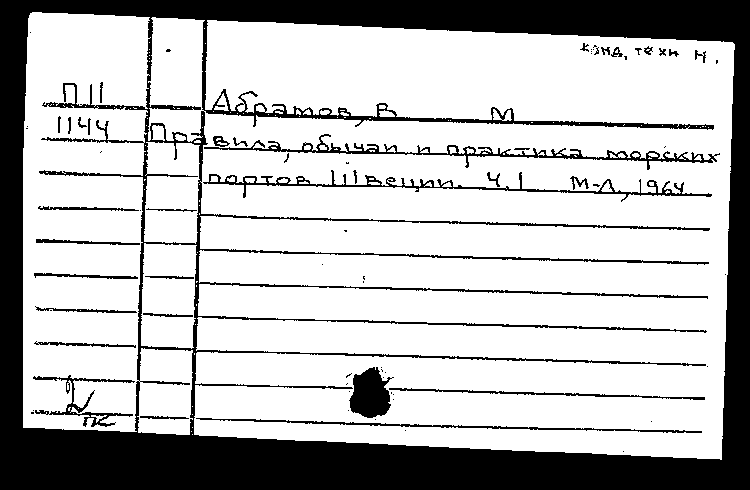 канд. техн н.
П II Абрамов, В М
1144 Правила, обычаи и практика морских
портов Швеции. Ч. I М-Л., 1964
2
пк